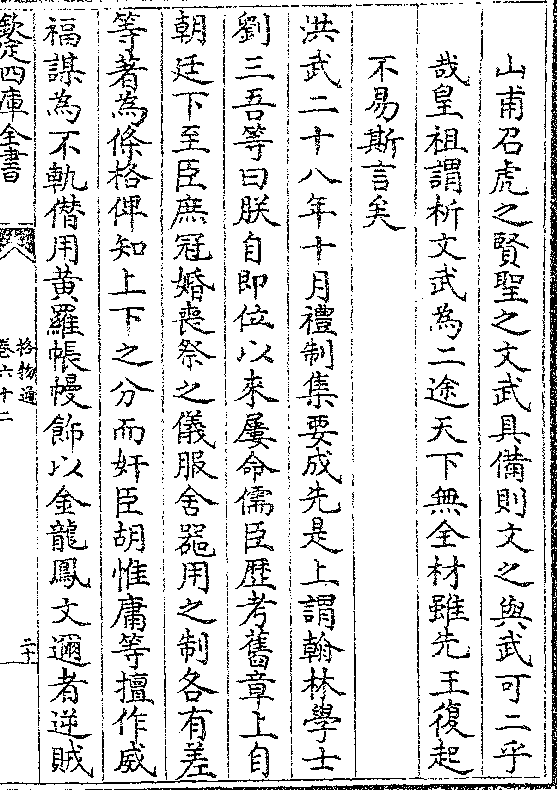 山甫召虎之賢聖之文武具備則文之與武可二乎
哉皇祖謂析文武為二途天下無全材雖先王復起
不易斯言矣
洪武二十八年十月禮制集要成先是上謂翰林學士
劉三吾等曰朕自即位以來屢命儒臣歷考舊章上自
朝廷下至臣庶冠婚喪祭之儀服舍器用之制各有差
等著為條格俾知上下之分而奸臣胡惟庸等擅作威
福謀為不軌僭用黃羅帳幔飾以金龍鳳文邇者逆賊
欽定四庫全書
格物通
卷六十二
二十